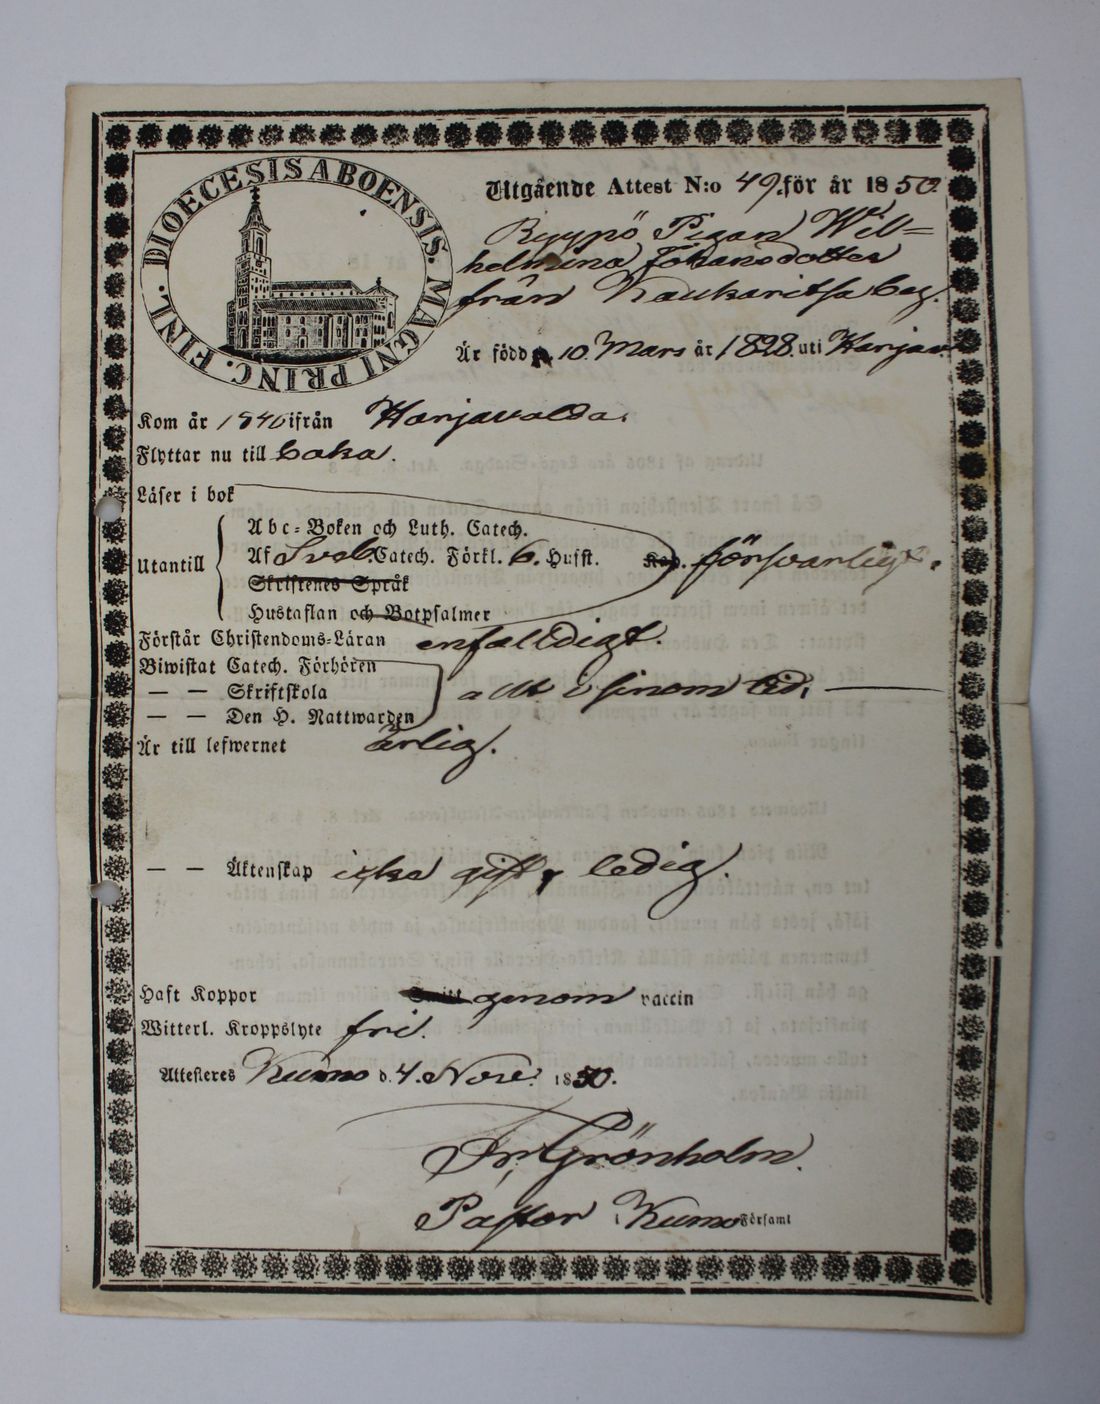 DIOECESIS ABOENSIS. MAGNI PRINC. FINL.
Utgående Attest N:o 49. för år 1850.
Pigan Wil=
helmina Johansdotter
från Kaukaritsa
Är född 10 Mars år 1828. uti Harjav
Kom år 1840 ifrån Harjavalda.
Flyttar nu till
Läser i bok
Abc-Boken och Luth. Catech.
Utantill
Af Sveb. Catech. Förkl. 6. Hufst. Kap. försvarligt.
Skriftenes Språk
Hustaflan och Botpsalmer
Förstår Christendoms-Läran enfalldigt.
Biwistat Catech. Förhören
— — Skriftskola allt i sinom tid.
— — Den H. Nattwarden
Är till lefwernet ärlig.
— — Äktenskap icke gift, ledig.
Haft Koppor genom vaccin
Witterl. Kroppslyte fri.
Attesteras Kumo d. 4. Nov. 1850.
Fr. Grönholm.
Pastor i Kumo Församl